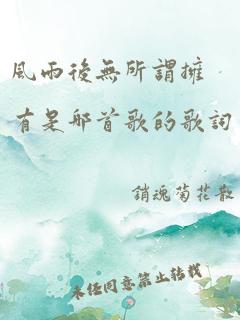 風雨後無所謂擁
有是那首歌的歌詞
銷魂菊花散
未经同意禁止转载